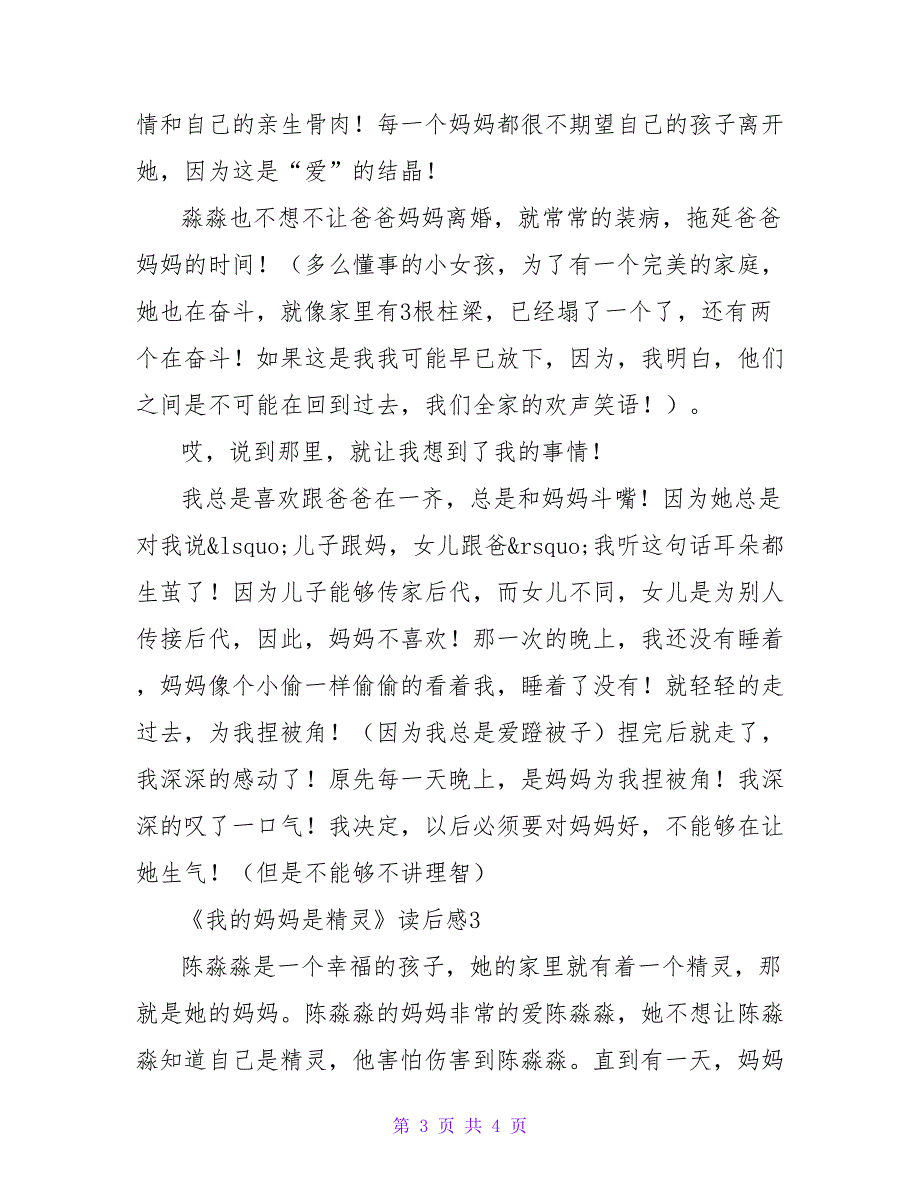 情和自己的亲生骨肉！每一个妈妈都很不期望自己的孩子离开
她，因为这是“爱”的结晶！
淼淼也不想不让爸爸妈妈离婚，就常常的装病，拖延爸爸
妈妈的时间！（多么懂事的小女孩，为了有一个完美的家庭，
她也在奋斗，就像家里有3根柱梁，已经塌了一个了，还有两
个在奋斗！如果这是我我可能早已放下，因为，我明白，他们
之间是不可能在回到过去，我们全家的欢声笑语！）。
哎，说到那里，就让我想到了我的事情！
我总是喜欢跟爸爸在一齐，总是和妈妈斗嘴！因为她总是
对我说&lsquo;儿子跟妈，女儿跟爸&rsquo;我听这句话耳朵都
生茧了！因为儿子能够传家后代，而女儿不同，女儿是为别人
传接后代，因此，妈妈不喜欢！那一次的晚上，我还没有睡着
，妈妈像个小偷一样偷偷的看着我，睡着了没有！就轻轻的走
过去，为我捏被角！（因为我总是爱蹬被子）捏完后就走了，
我深深的感动了！原先每一天晚上，是妈妈为我捏被角！我深
深的叹了一口气！我决定，以后必须要对妈妈好，不能够在让
她生气！（但是不能够不讲理智）
《我的妈妈是精灵》读后感3
陈淼淼是一个幸福的孩子，她的家里就有着一个精灵，那
就是她的妈妈。陈淼淼的妈妈非常的爱陈淼淼，她不想让陈淼
淼知道自己是精灵，他害怕伤害到陈淼淼。直到有一天，妈妈
第 3 页 共 4 页